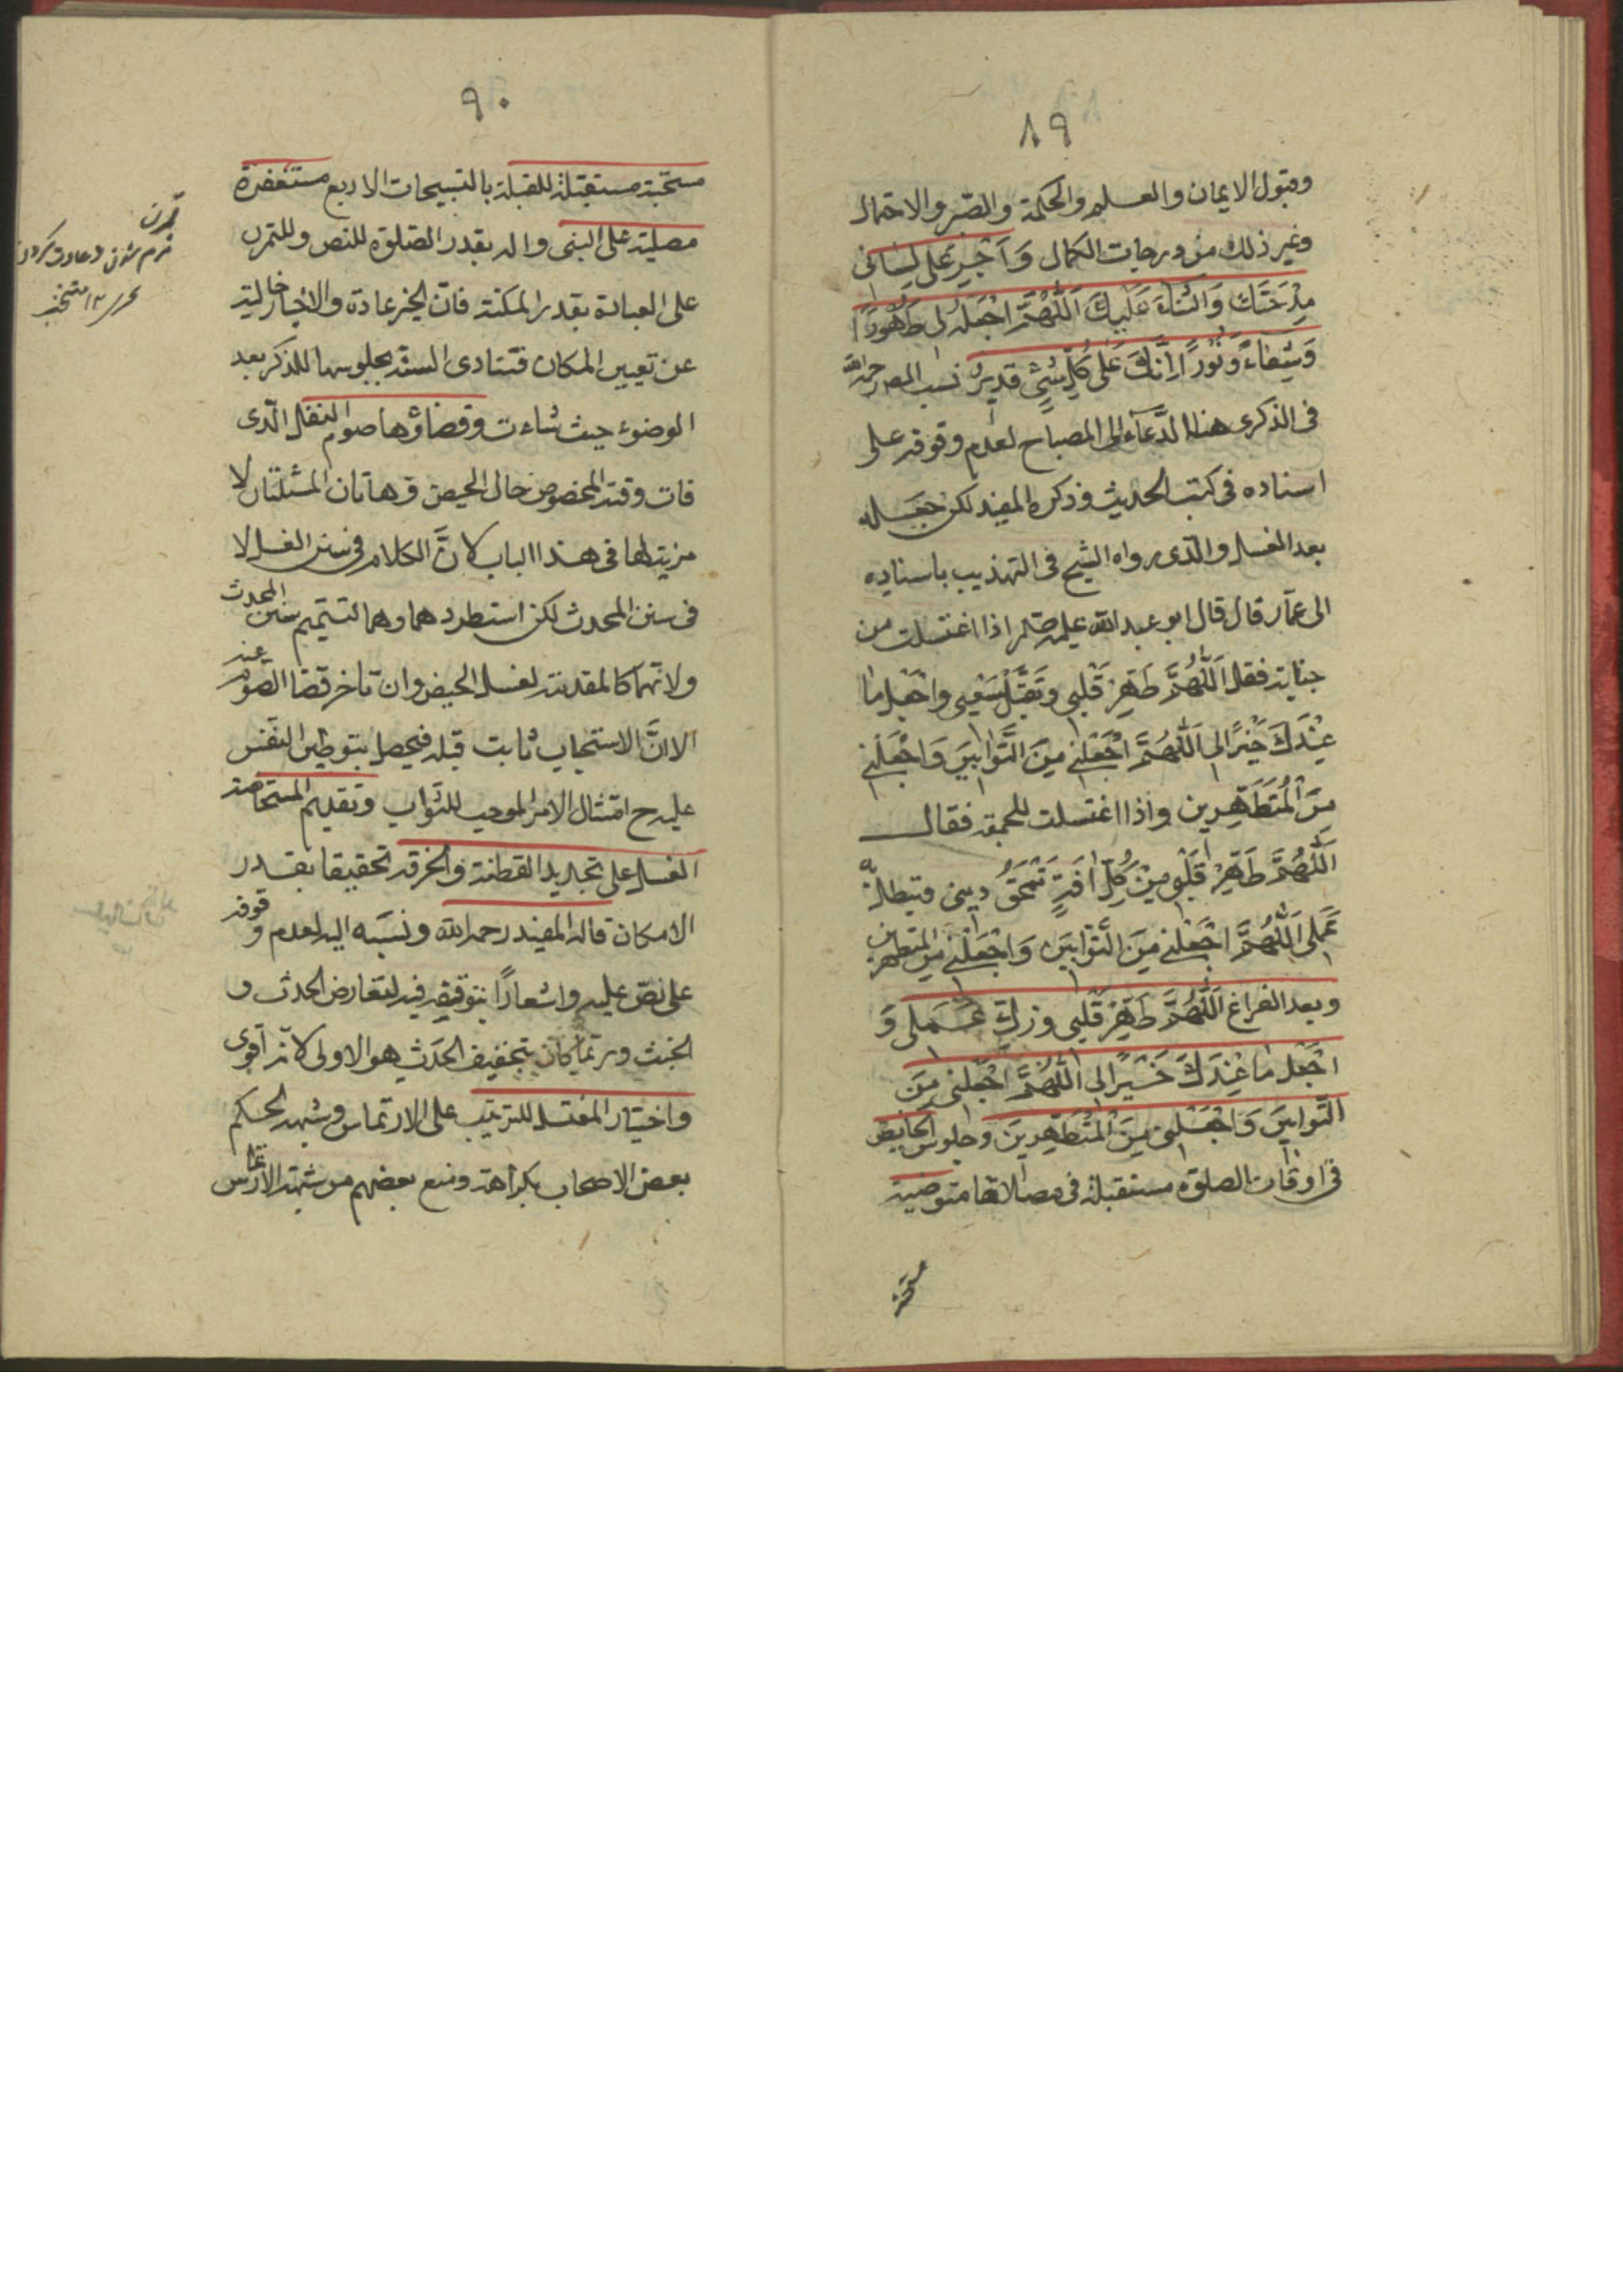 ٨٩
وقبول الايمان والعلم والحكمة والصّبر والاحتمال
وغير ذلك من درجات الكمال وَاَجْرِ عَلى لِسانى
مِدْحَتَكَ وَالثَّناءَ عَلَيكَ اَللّهُمَّ اجْعَلْهُ لى طَهُورًا
وَشِفاءً وَنُورًا اِنَّكَ عَلى كُلِّ شَىْءٍ قديرٌ نسب المص رحمه الله
فى الذكرى هذا الدّعآء الى المصباح لعدم وقوفه على
اسناده فى كتب الحديث وذكره المفيد لكن جعله
بعد الغسل والّذى رواه الشيخ فى التهذيب باسناده
الى عمّار قال قال ابو عبد الله عليه السلم اذا اغتسلت من
جنابة فقل اَللّهُمَّ طَهِّرْ قَلْبى وتَقَبَّلْ سَعْيى واجْعَل ما
عِنْدَكَ خَيْرًا لى اَللّهُمَّ اجْعَلْنى مِنَ التَّوّابينَ وَاجْعَلْنى
مِنَ الْمُتَطَهِّرين واذا اغتسلت للجمعة فقال
اَللّهُمَّ طَهِّرْ قَلْبى مِنْ كُلِّ افَةٍ تَمْحَقُ دينى وتبطل بهِ
عَمَلى اَللّهُمَّ اجْعَلْنى مِنَ التَّوّابينَ وَاجْعَلْنى مِنَ المتطهرين
وبعد الفراغ اَللّهُمَّ طَهِّرْ قَلْبى وزكِّ عَمَلى وَ
اجْعَل ما عِنْدَكَ خَيْرًا لى اللّهُمَّ اجْعَلْنى مِنَ
التّوابينَ وَاجْعَلْنى مِنَ الْمُتَطَهِّرينَ وجلوس الحايض
فى اوقات الصلوة مستقبلة فى مصلاها متوضية
٩٠
مسبّحة مستقبلة للقبلة بالتسبيحات الاربع مستغفرة
مصلية على النبى واله بقدر الصّلوة للنص وللتمرن
على العبادة بقدر المكنة فانّ الخير عادة والاخبار خالية
عن تعيين المكان فتتادى السنة بجلوسها للذكر بعد
الوضوء حيث شاءت وقضاؤها صوم النفل الّذى
فات وقته المخصوص حال الحيض وهاتان المسئلتان لا
مزية لها فى هذا الباب لانَّ الكلام فى سنن الغسل لا
فى سنن المحدث لكن استطردهما وهما لتتميم سنن المحدث
ولانهما كالمقدمة لغسل الحيض وان تاخر قضا الصوم عنه
الا انَّ الاستحباب ثابت قبله فيحصل بتوطين النفس
عليه ح امتثال الامر الموجب للثّواب وتقديم المستحاضة
الغسل على تجديد القطنة والخرقة تحقيقا بقدر
الامكان قاله المفيد رحمه الله ونسَبه اليه لعدم وقوفه
على نصّ عليه واشعارًا بتوقيفه فيه لتعارض الحدث و
الخبث وربّما كان تخفيف الحَدث هو الاولى لانّه اقوى
واختيار المغتسل للترتيب على الارتماس وشبهه لحكم
بعض الاصحاب بكراهة ومنع بعضهم من شبهة الارتماس